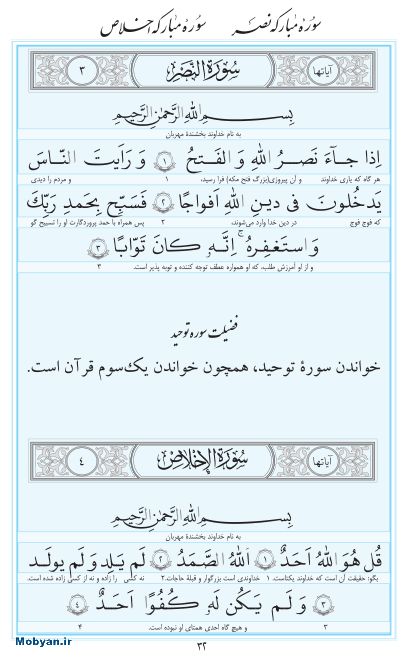 سورهٔ مبارکه نصر
سورهٔ مبارکه اخلاص
آیاتها سُورَةُ النَّصْر ٣
بِسمِ اللهِ الرَّحمٰنِ الرَّحیمِ
به نام خداوند بخشندهٔ مهربان
اِذا جـآءَ نَصـرُ اللهِ وَ الـفَتحُ ١ وَ رَاَیتَ النّـاسَ
هر گاه که یاری خداوند و آن پیروزی(بزرگ فتح مکه) فرا رسید، ١ و مردم را دیدی
یَدخُلونَ فی دینِ اللهِ اَفواجًا ٢ فَسَبِّح بِحَمدِ رَبِّکَ
که فوج فوج در دین خدا وارد می‌شوند، ٢ پس همراه با حمد پروردگارت او را تسبیح گو
وَ استَغفِرهُ ۚ اِنَّـهٗ کانَ تَوّابًا ٣
و از او آمرزش طلب، که او همواره عطف توجه کننده و توبه پذیر است. ٣
فضیلت سوره توحید
خواندن سورهٔ توحید، همچون خواندن یک‌سوم قرآن است.
آیاتها سُورَةُ الإِخلاص ٤
بِسمِ اللهِ الرَّحمٰنِ الرَّحیمِ
به نام خداوند بخشندهٔ مهربان
قُل هُوَ اللهُ اَحَدٌ ١ اَللهُ الصَّمَدُ ٢ لَم یَلِد وَ لَم یولَد
بگو: حقیقت آن است که خداوند یکتاست. ١ خداوندی است بزرگوار و قبلهٔ حاجات. ٢ نه کسی را زاده و نه از کسی زاده شده است.
٣ وَ لَم یَکُن لَهٗ کُفُوًا اَحَدٌ ٤
٣ و هیچ گاه احدی همتای او نبوده است. ۴
٣٢
Mobyan.ir